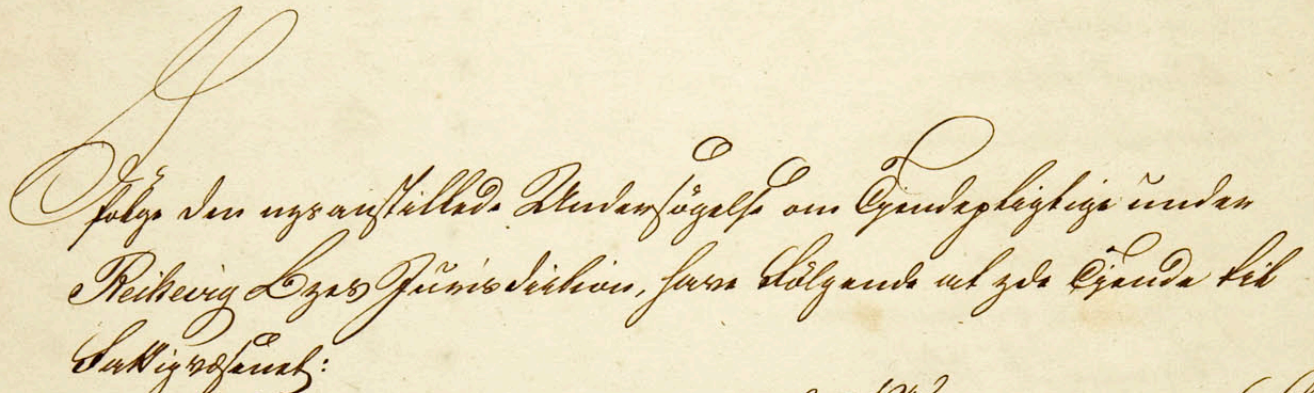 Ifølge den nye anstillede Undersögelse om Tiendepligtige under
Reikevig Byes Jurisdiction, have Fölgende at yde Tiende til
Fattigvæsenet: